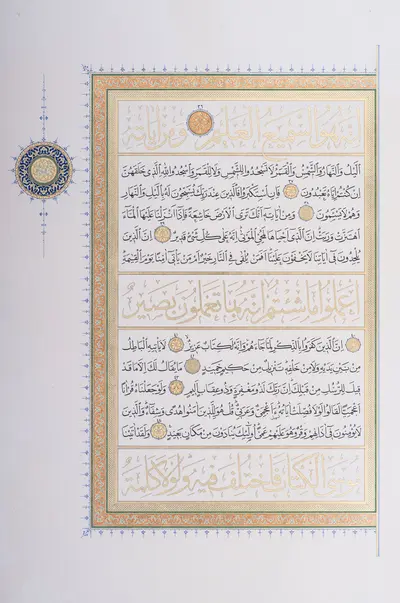 إِنَّهُ هُوَ السَّمِيعُ الْعَلِيمُ وَمِنْ آيَاتِهِ
اللَّيْلُ وَالنَّهَارُ وَالشَّمْسُ وَالْقَمَرُ لَا تَسْجُدُوا لِلشَّمْسِ وَلَا لِلْقَمَرِ وَاسْجُدُوا لِلَّهِ الَّذِي خَلَقَهُنَّ
إِنْ كُنْتُمْ إِيَّاهُ تَعْبُدُونَ فَإِنِ اسْتَكْبَرُوا فَالَّذِينَ عِنْدَ رَبِّكَ يُسَبِّحُونَ لَهُ بِاللَّيْلِ وَالنَّهَارِ
وَهُمْ لَا يَسْأَمُونَ وَمِنْ آيَاتِهِ أَنَّكَ تَرَى الْأَرْضَ خَاشِعَةً فَإِذَا أَنْزَلْنَا عَلَيْهَا الْمَاءَ
اهْتَزَّتْ وَرَبَتْ إِنَّ الَّذِي أَحْيَاهَا لَمُحْيِي الْمَوْتَى إِنَّهُ عَلَى كُلِّ شَيْءٍ قَدِيرٌ إِنَّ الَّذِينَ
يُلْحِدُونَ فِي آيَاتِنَا لَا يَخْفَوْنَ عَلَيْنَا أَفَمَنْ يُلْقَى فِي النَّارِ خَيْرٌ أَمْ مَنْ يَأْتِي آمِنًا يَوْمَ الْقِيَامَةِ
اعْمَلُوا مَا شِئْتُمْ إِنَّهُ بِمَا تَعْمَلُونَ بَصِيرٌ
إِنَّ الَّذِينَ كَفَرُوا بِالذِّكْرِ لَمَّا جَاءَهُمْ وَإِنَّهُ لَكِتَابٌ عَزِيزٌ لَا يَأْتِيهِ الْبَاطِلُ
مِنْ بَيْنِ يَدَيْهِ وَلَا مِنْ خَلْفِهِ تَنْزِيلٌ مِنْ حَكِيمٍ حَمِيدٍ مَا يُقَالُ لَكَ إِلَّا مَا قَدْ
قِيلَ لِلرُّسُلِ مِنْ قَبْلِكَ إِنَّ رَبَّكَ لَذُو مَغْفِرَةٍ وَذُو عِقَابٍ أَلِيمٍ وَلَوْ جَعَلْنَاهُ قُرْآنًا
أَعْجَمِيًّا لَقَالُوا لَوْلَا فُصِّلَتْ آيَاتُهُ أَأَعْجَمِيٌّ وَعَرَبِيٌّ قُلْ هُوَ لِلَّذِينَ آمَنُوا هُدًى وَشِفَاءٌ وَالَّذِينَ
لَا يُؤْمِنُونَ فِي آذَانِهِمْ وَقْرٌ وَهُوَ عَلَيْهِمْ عَمًى أُولَئِكَ يُنَادَوْنَ مِنْ مَكَانٍ بَعِيدٍ وَلَقَدْ آتَيْنَا
مُوسَى الْكِتَابَ فَاخْتُلِفَ فِيهِ وَلَوْلَا كَلِمَةٌ